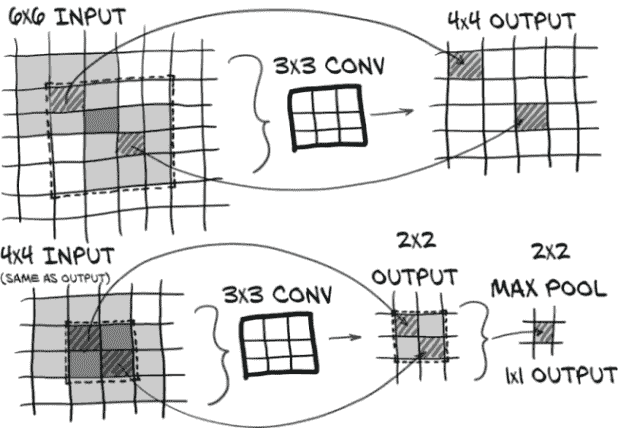 6X6 INPUT
3X3 CONV
4X4 OUTPUT
4X4 INPUT
(SAME AS OUTPUT)
3X3 CONV
2X2
OUTPUT
2X2
MAX POOL
1X1 OUTPUT